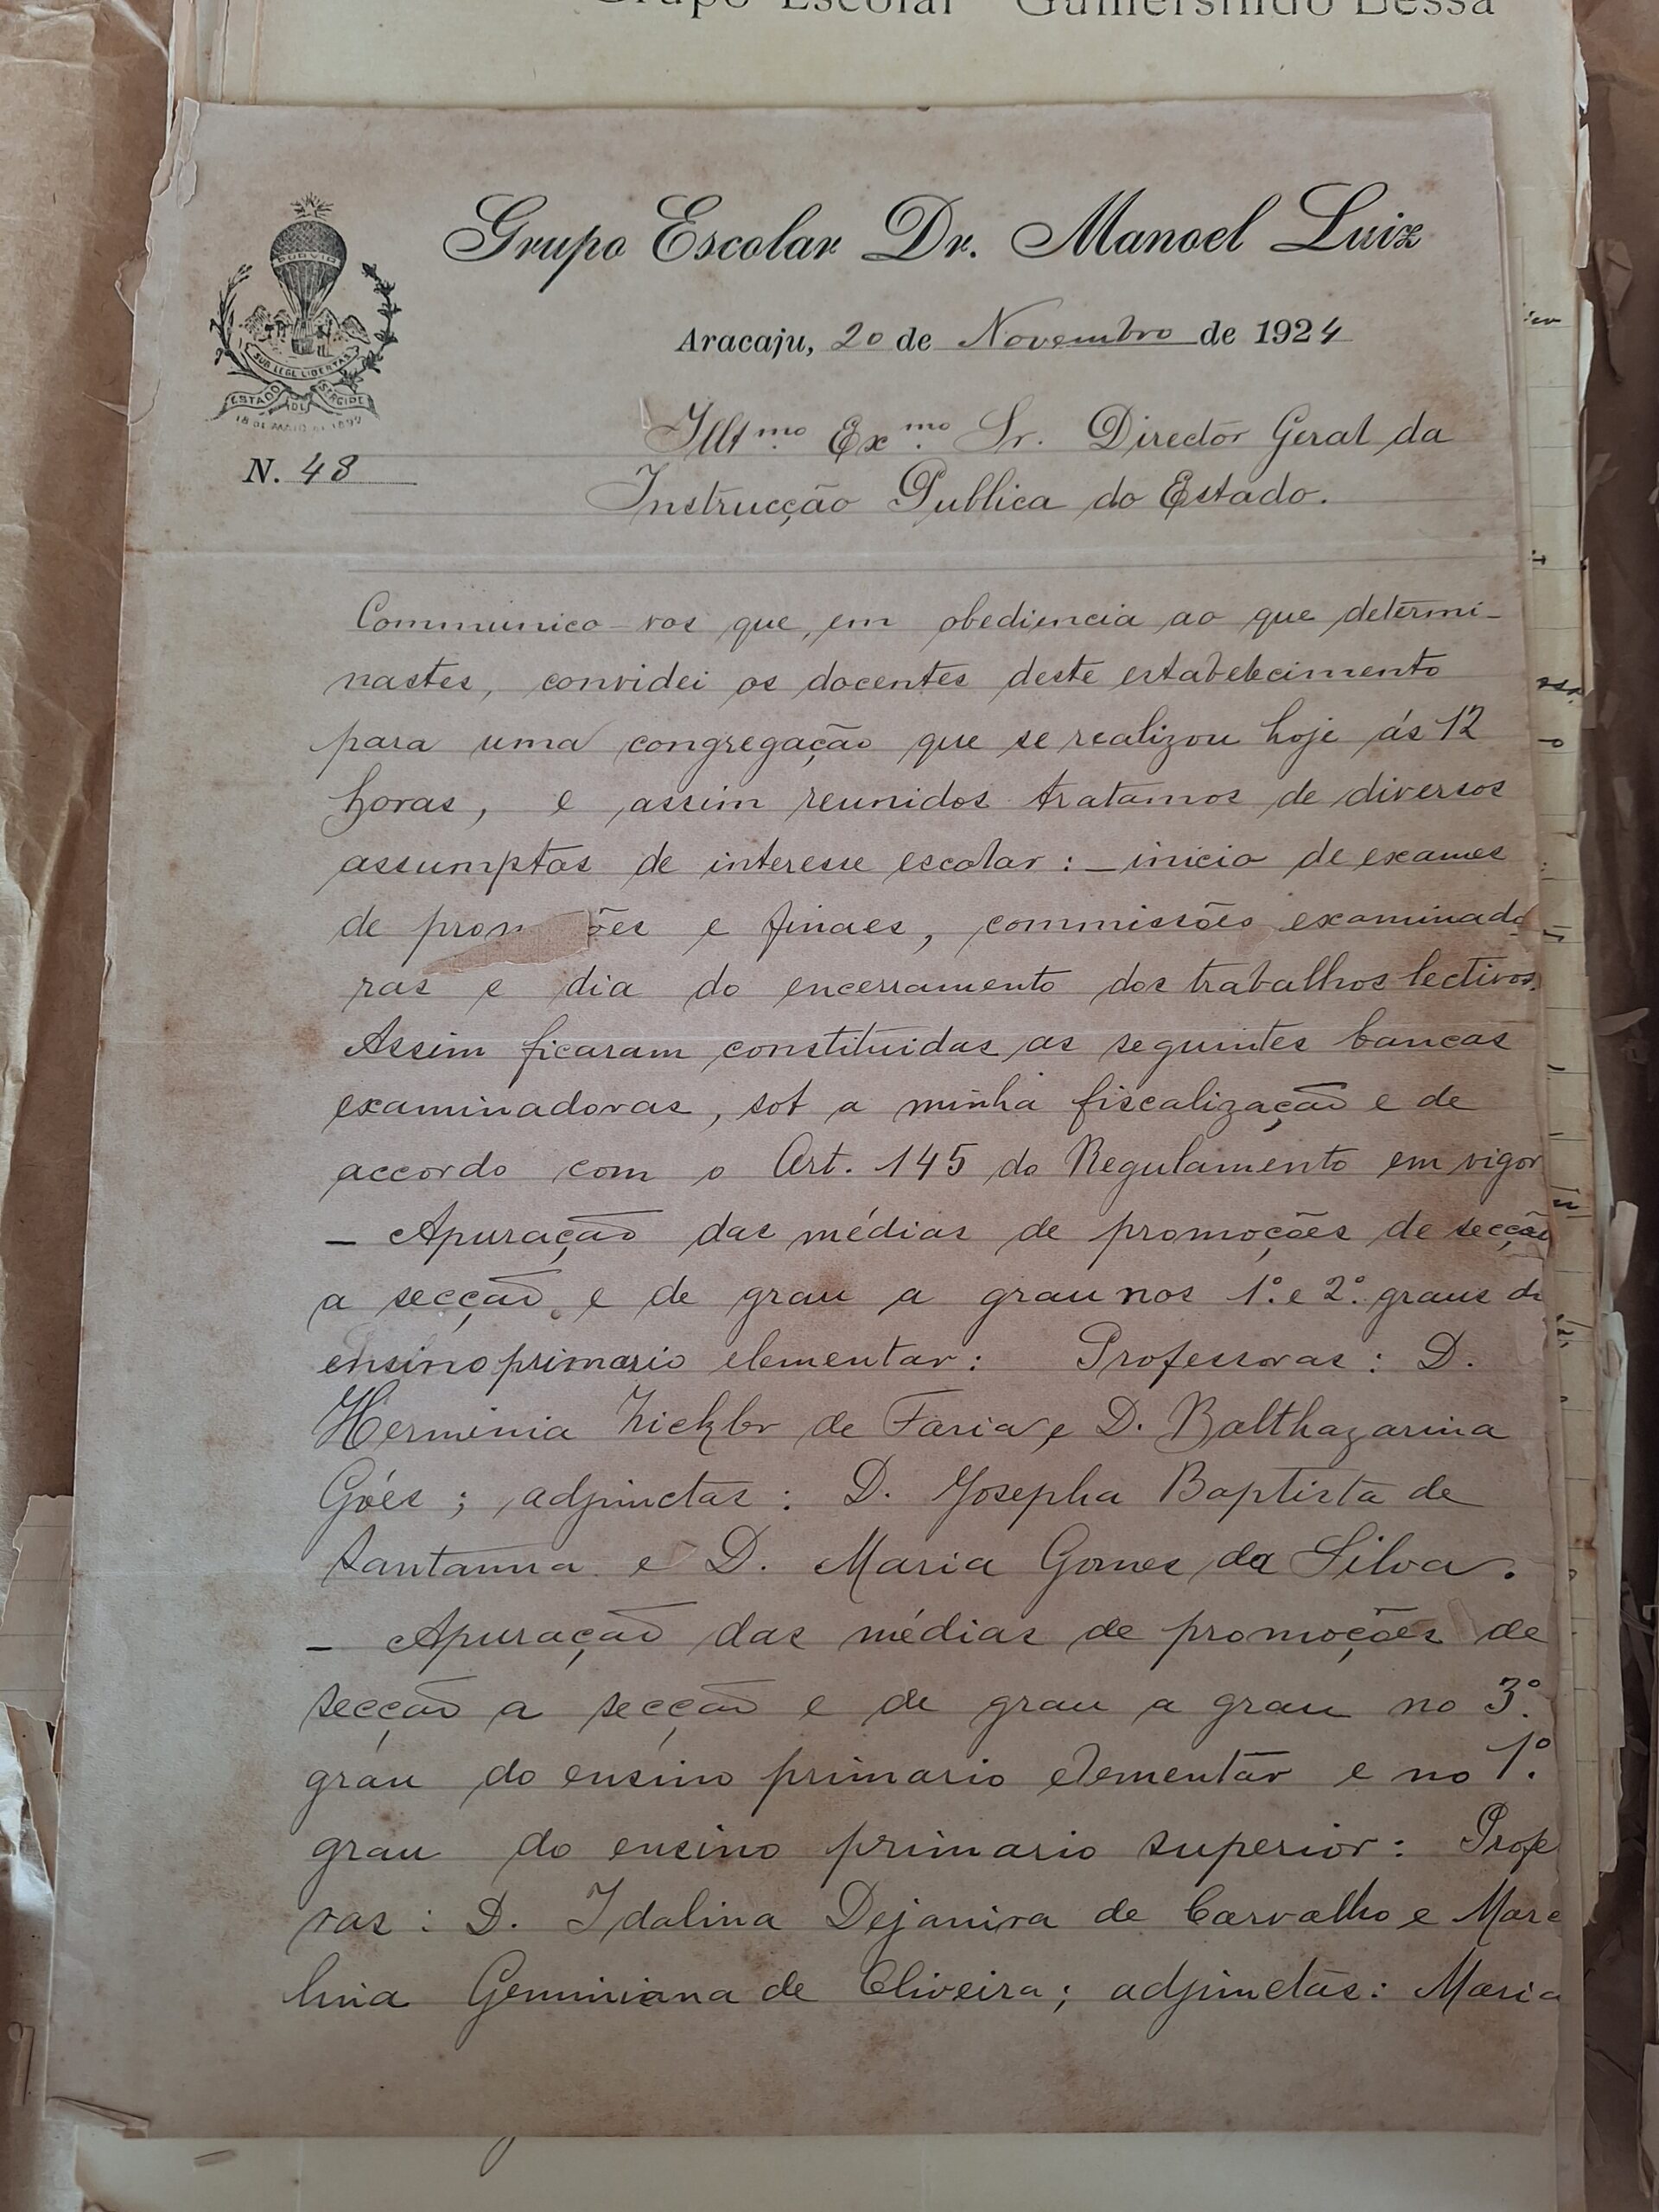 Grupo Escolar Gumersindo Bessa
Grupo Escolar Dr. Manoel Luiz
PORVIR
SUB LEGE LIBERTAS
ESTADO DE SERGIPE
18 DE MAIO DE 1892
Aracaju, 20 de Novembro de 1924
Illt.mo Ex.mo Sr. Director Geral da
N. 48
Instrucção Publica do Estado.
Communico-vos que, em obediencia ao que determi-
nastes, convidei os docentes deste estabelecimento
para uma congregação que se realizou hoje ás 12
horas, e assim reunidos tratamos de diversos
assumptos de interesse escolar: _ inicio de exames
de prom ões e finaes, commissões examinado
ras e dia do encerramento dos trabalhos lectivos.
Assim ficaram constituidas as seguintes bancas
examinadoras, sob a minha fiscalização e de
accordo com o Art. 145 do Regulamento em vigor
_ Apuração das médias de promoções de secção
a secção e de grau a grau nos 1.º e 2.º graus do
ensino primario elementar: Professoras: D.
Herminia de Faria e D. Balthazarina
Góes; adjunctas: D. Josepha Baptista de
Santanna e D. Maria Gomes da Silva.
_ Apuração das médias de promoções de
secção a secção e de grau a grau no 3.º
grau do ensino primario elementar e no 1.º
grau do ensino primario superior: Profe
ras: D. Idalina Dejanira de Carvalho e Marc
lina Geminiana de Oliveira; adjunctas: Maria